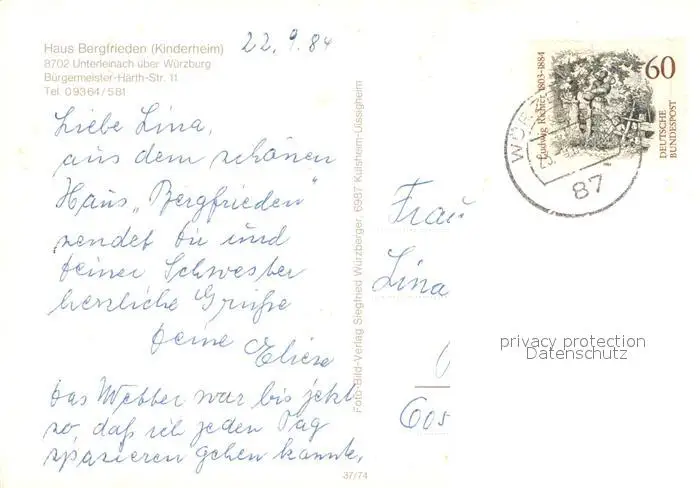 Haus Bergfrieden (Kinderheim)
8702 Unterleinach über Würzburg
Bürgermeister-Härth-Str. 11
Tel. 09364/581
22.9.84
Liebe Lina,
aus dem schönen
Haus „Bergfrieden"
sendet Dir und
Deiner Schwester
herzliche Grüße
Deine Eliese
Das Wetter war bis jetzt
so, daß ich jeden Tag
spazieren gehen konnte.
37/74
Foto-Bild-Verlag Siegfried Würzberger, 6987 Külsheim-Uissigheim
Frau
Lina
Ludwig Richter 1803-1884
60
DEUTSCHE
BUNDESPOST
87
privacy protection
Datenschutz